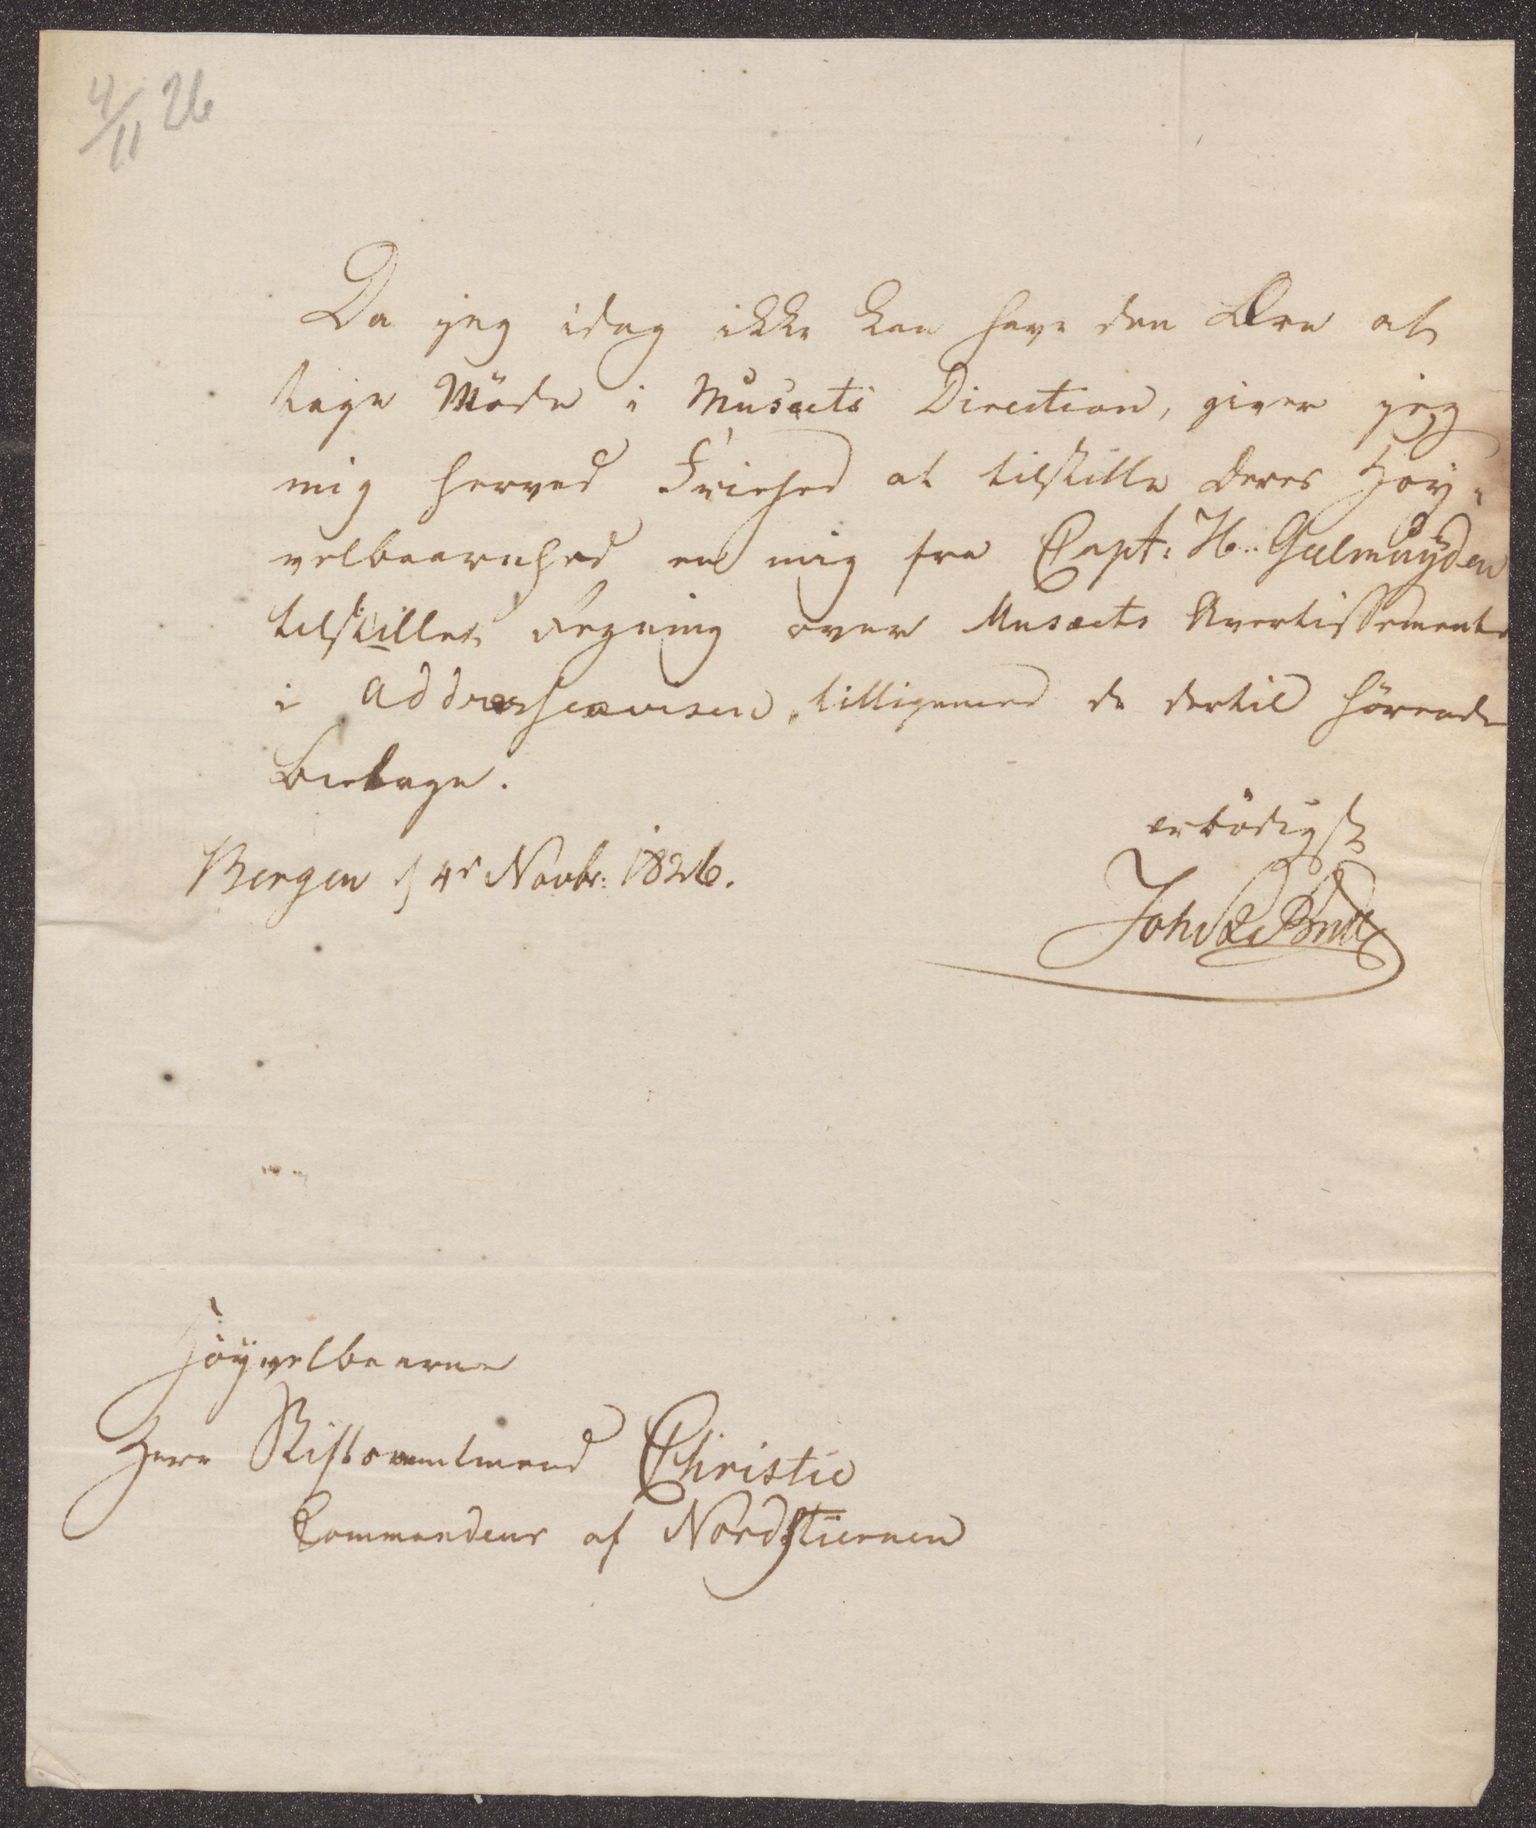 4/11 26
Da jeg idag ikke kan have den Ære at
tage Möde i Musæets Direction, giver jeg
mig herved Friehed at tilstille Deres Høy-
velbaarnhed en mig fra Capt: H. Geelmuyden
tilstillet Regning over Musæets Avertissementer
i Addresseavisen, tilligemed de dertil hörende
Bielage.
erbödigst
Bergen d 4de Novbr: 1826.
Joh
Höyvelbaarne
Herr Stiftsamtmand Christie
Commandeur af Nordstiernen